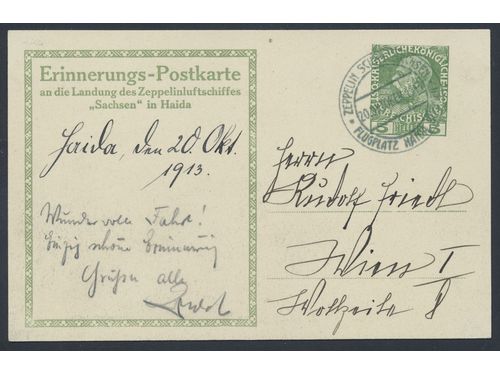 Erinnerungs-Postkarte
an die Landung des Zeppelinluftschiffes
„Sachsen" in Haida
Haida, den 20. Okt.
1913.
Wundervolle Fahrt!
Einzig schöne Erinnerung
Grüßen alle
ZEPPELIN
FLUGPLATZ HAIDA
5 5
Herrn
Rudolf Friedl
Wien I
Wollzeile